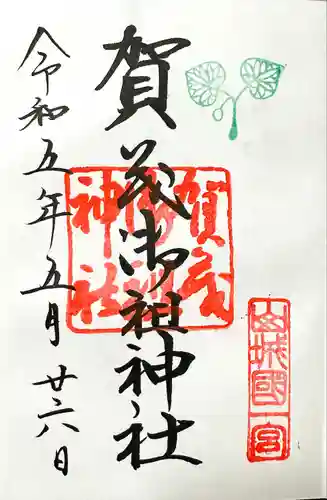 賀茂御祖神社
山城國
一宮
賀茂
御祖
神社
令和五年五月廿六日